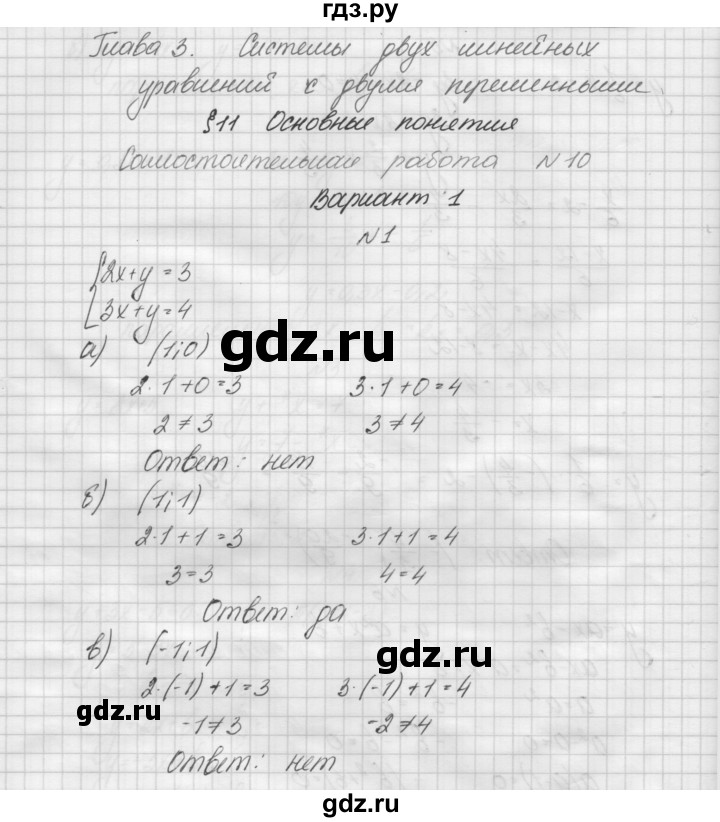 гдз.ру
Глава 3. Системы двух линейных
уравнений с двумя переменными
§11 Основные понятия
Самостоятельная работа №10
Вариант 1
№1
{2x+y=3
3x+y=4
а) (1;0)
2·1+0=3 3·1+0=4
2≠3 3≠4
Ответ: нет
б) (1;1)
2·1+1=3 3·1+1=4
3=3 4=4
Ответ: да
в) (-1;1)
2·(-1)+1=3 3·(-1)+1=4
-1≠3 -2≠4
Ответ: нет
gdz.ru
gdz.ru
gdz.ru
gdz.ru